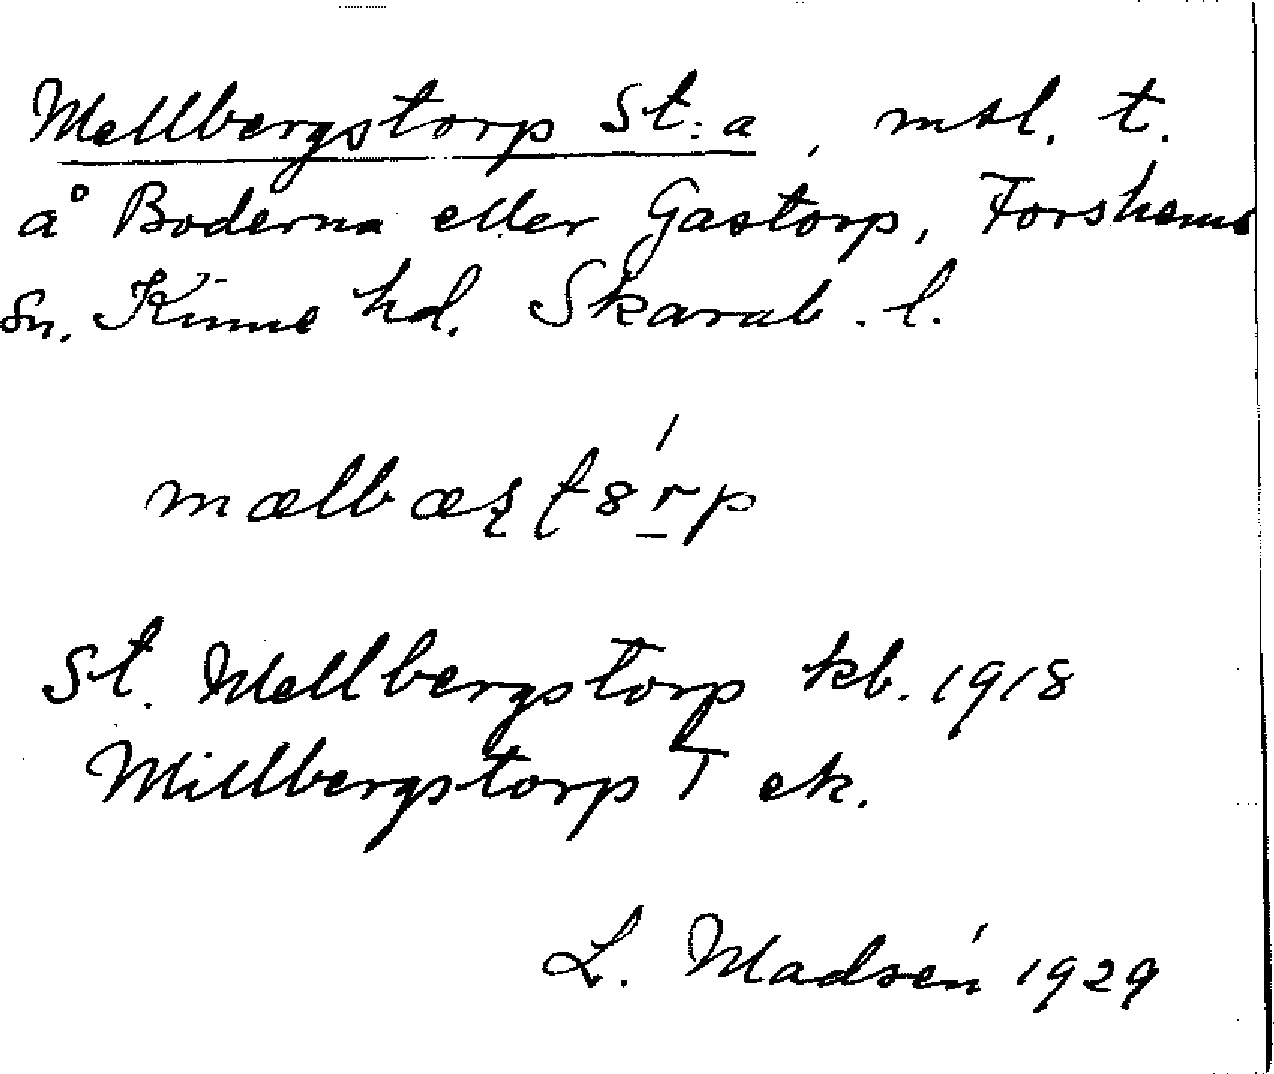 Mellbergstorp St:a, msl. t.
å Boderna eller Gastorp, Forshems
sn. Kinne hd. Skarab. l.
St. Mellbergstorp kb. 1918
Millbergstorp T ek.
L. Madsén 1929